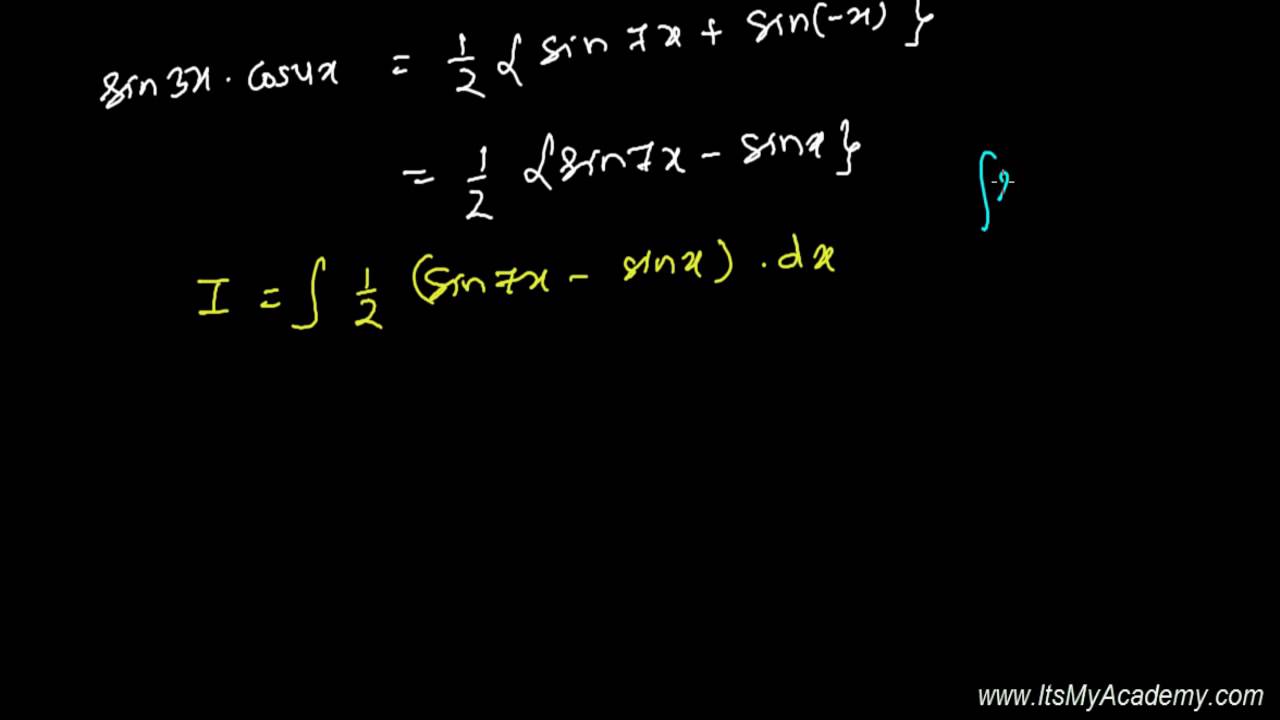 sin3x · cos4x = 1/2 { sin 7x + sin(-x) }
= 1/2 { sin7x - sinx }
I = ∫ 1/2 (sin7x - sinx) · dx
∫
www.ItsMyAcademy.com